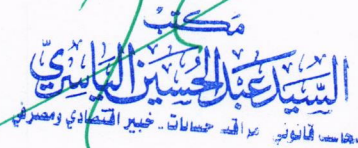 مكتب
السيد عبد الحسين الياسري
محاسب قانوني مراقب حسابات .. خبير اقتصادي ومصرفي